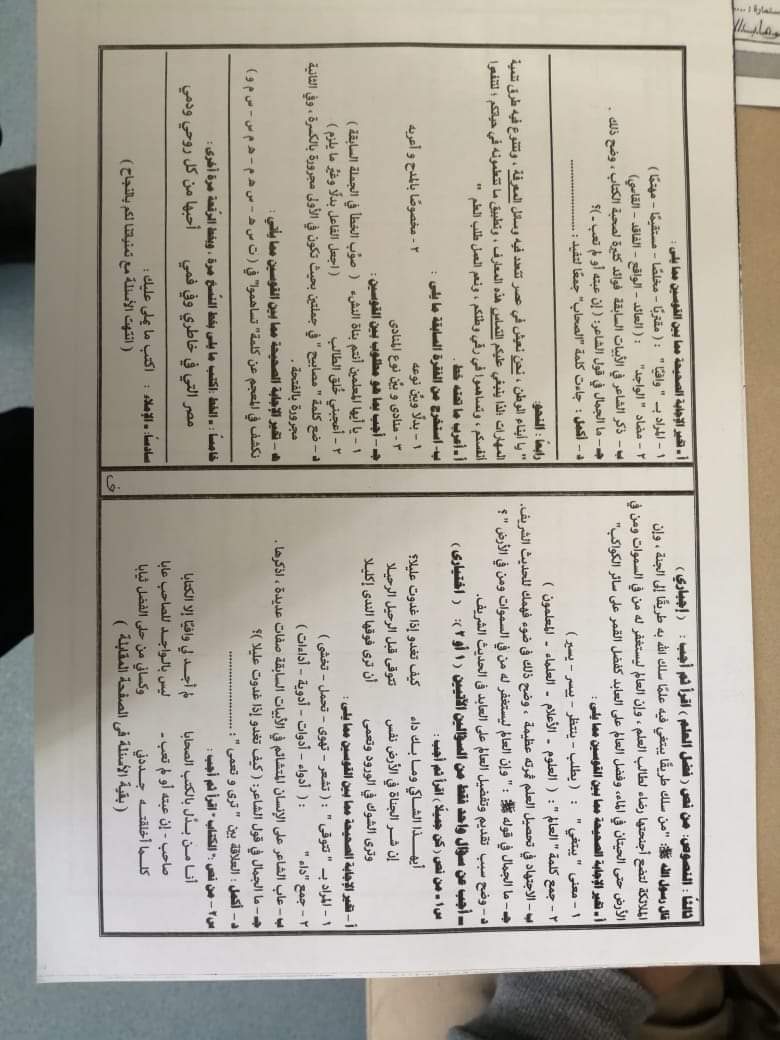 ثالثًا : النصوص: من نص ( فضل العلم ) اقرأ ثم أجب : ( إجباري )
قال رسول الله ﷺ: "من سلك طريقًا يبتغي فيه علمًا سلك الله به طريقًا إلى الجنة ، وإن
الملائكة لتضع أجنحتها رضاء لطالب العلم ، وإن العالم ليستغفر له من في السموات ومن في
الأرض حتى الحيتان في الماء، وفضل العالم على العابد كفضل القمر على سائر الكواكب"
أ – تخير الإجابة الصحيحة مما بين القوسين مما يلى :
١ - معنى " يبتغي " : ( يطلب – ينتظر – يسر – يسير )
٢ - جمع كلمة " العالم " : ( العلوم – الأعلام – العلماء – المعلمون )
ب – الاجتهاد في تحصيل العلم ثمرته عظيمة ، وضح ذلك في ضوء فهمك للحديث الشريف.
جـ – ما الجمال في قوله ﷺ : " وإن العالم ليستغفر له من في السموات ومن في الأرض " ؟
د – وضح سبب تقديم وتفضيل العالم على العابد فى الحديث الشريف.
– أجب عن سؤال واحد فقط من السؤالين الآتيين (١ أو ٢ ) : ( اختيارى )
س١ – من نص ( كن جميلًا ) اقرأ ثم أجب :
أيهـــذا الشـاكي ومـا بـك داء كيف تغدو إذا غدوت عليلا؟
إن شــر الجناة في الأرض نفس تتوقى قبل الرحيل الرحيـلا
وترى الشوك في الورود وتعمى أن ترى فوقها الندى إكليـلا
أ – تخير الإجابة الصحيحة مما بين القوسين مما يلى :
١ - المراد بـ " تتوقى " : ( تشعر – تهوى – تحمل – تخشى )
٢ - جمع "داء" : ( أدواء – أدوات – أدوية – أداءات )
ب – عاب الشاعر على الإنسان المتشائم في الأبيات السابقة صفات عديدة ، اذكرها .
جـ – ما الجمال في قول الشاعر: ( كيف تغدو إذا غدوت عليلا )؟
د – أكمل : العلاقة بين " ترى و تعمى" : ................
س٢ – من نص : "الكتاب " اقرأ ثم أجب :
أنـا مــن بـدّل بالكتب الصحابا لم أجــد لي وافيًا إلا الكتابا
صاحب – إن عبته أو لم تعب – ليس بالواجــد للصاحب عابا
كلــما أخلقتــه جــددني وكساني من حلى الفضل ثيابا
( بقية الأسئلة فى الصفحة المقابلة )
أ – تخير الإجابة الصحيحة مما بين القوسين مما يلى :
١ - المراد بـ " وافيًا " : ( مقتربًا – مخلصًا – مستقيمًا – مهتمًا )
٢ - مضاد "الواجد" : ( العائد – الواقع – الفاقد – القاسي)
ب – ذكر الشاعر في الأبيات السابقة فوائد كثيرة لصحبة الكتاب ، وضح ذلك .
جـ – ما الجمال في قول الشاعر: ( إن عبته أو لم تعب – )؟
د – أكمل : جاءت كلمة "الصحاب" جمعًا لتفيد : ................
رابعًا : النحو:
" يا أبناء الوطن ، نحن نعيش في عصر تتعدد فيه وسائل المعرفة ، وتتنوع فيه طرق تنمية
المهارات لذا ينبغي عليكم التماس هذه المعارف ، وتطبيق ما تتعلمونه في حياتكم ؛ لتنفعوا
أنفسكم ، وتساهموا في رقي وطنكم ، ونعم العمل طلب العلم "
أ – أعرب ما تحته خط .
ب – استخرج من الفقرة السابقة ما يلى :
١ - بدلًا وبيّن نوعه ٢ - مخصوصًا بالمدح و أعربه
٣ - منادى و بيّن نوع المنادى
جـ – أجب بما هو مطلوب بين القوسين :
١ - يا أيها المعلمين أنتم بناة النشء ( صوّب الخطأ في الجملة السابقة )
٢ - أعجبني خُلق الطالب ( اجعل الفاعل بدلًا وغيّر ما يلزم )
د – ضع كلمة " مصابيح " في جملتين بحيث تكون في الأولى مجرورة بالكسرة ، وفي الثانية
مجرورة بالفتحة .
هـ – تخير الإجابة الصحيحة مما بين القوسين مما يأتى :
نكشف في المعجم عن كلمة " تساهموا" في ( ت س هـ – س هـ م – هـ م س – س م و )
خامسًا : – الخط اكتب ما يلى بخط النُّسخ مرة ، وبخط الرقعة مرة أخرى :
مصر التي في خاطري وفي فمي أحبها من كل روحي ودمي
سادسًا : – الإملاء : اكتب ما يملى عليك :
( انتهت الأسئلة مع تمنياتنا لكم بالنجاح )